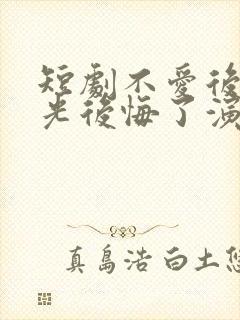 短劇不愛後
光後悔了演
真島浩 白土悠